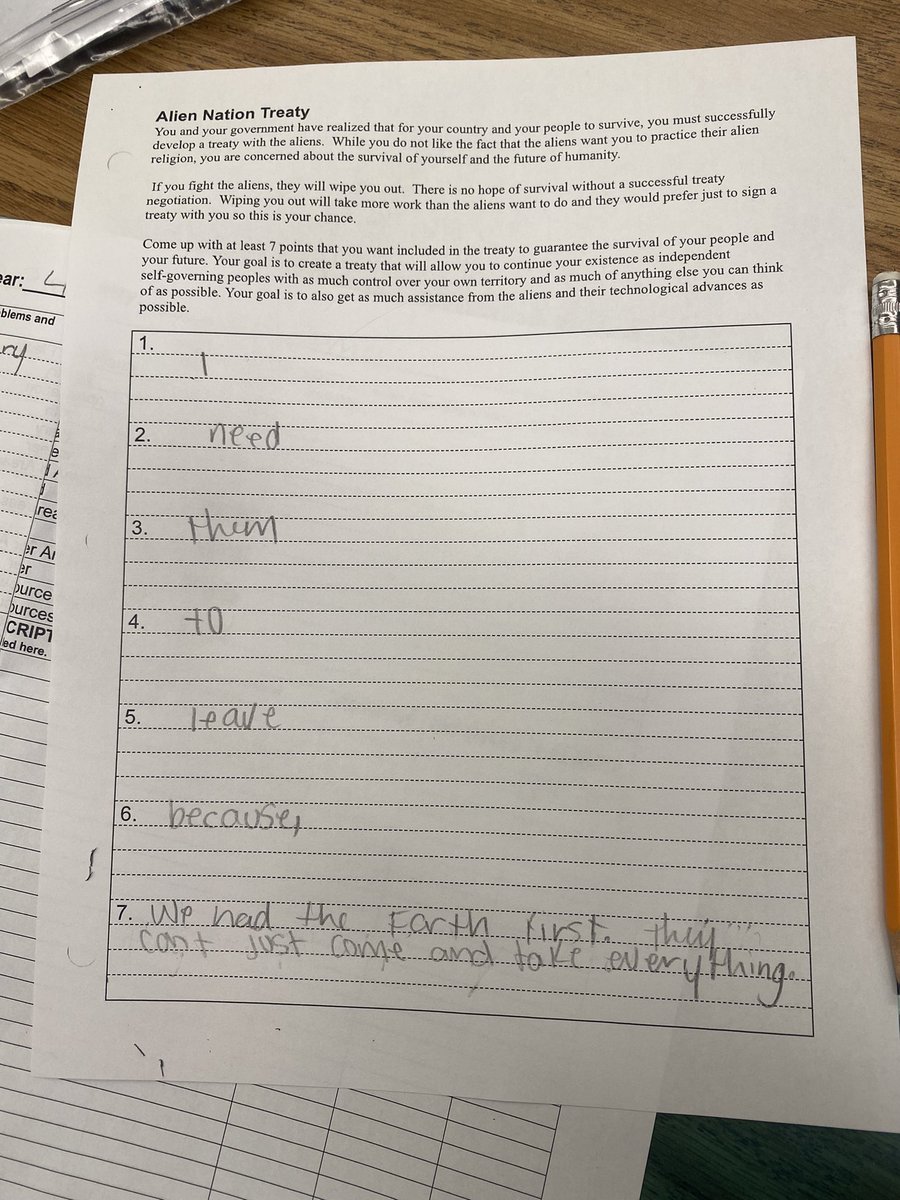 Alien Nation Treaty
You and your government have realized that for your country and your people to survive, you must successfully
develop a treaty with the aliens. While you do not like the fact that the aliens want you to practice their alien
religion, you are concerned about the survival of yourself and the future of humanity.
If you fight the aliens, they will wipe you out. There is no hope of survival without a successful treaty
negotiation. Wiping you out will take more work than the aliens want to do and they would prefer just to sign a
treaty with you so this is your chance.
Come up with at least 7 points that you want included in the treaty to guarantee the survival of your people and
your future. Your goal is to create a treaty that will allow you to continue your existence as independent
self-governing peoples with as much control over your own territory and as much of anything else you can think
of as possible. Your goal is to also get as much assistance from the aliens and their technological advances as
possible.
1. I
2. need
3. them
4. to
5. leave
6. because,
7. We had the Earth first. they
can't just come and take everything.
ear:
blems and
ry
er Ar
er
ource
ources
CRIPT
ed here.